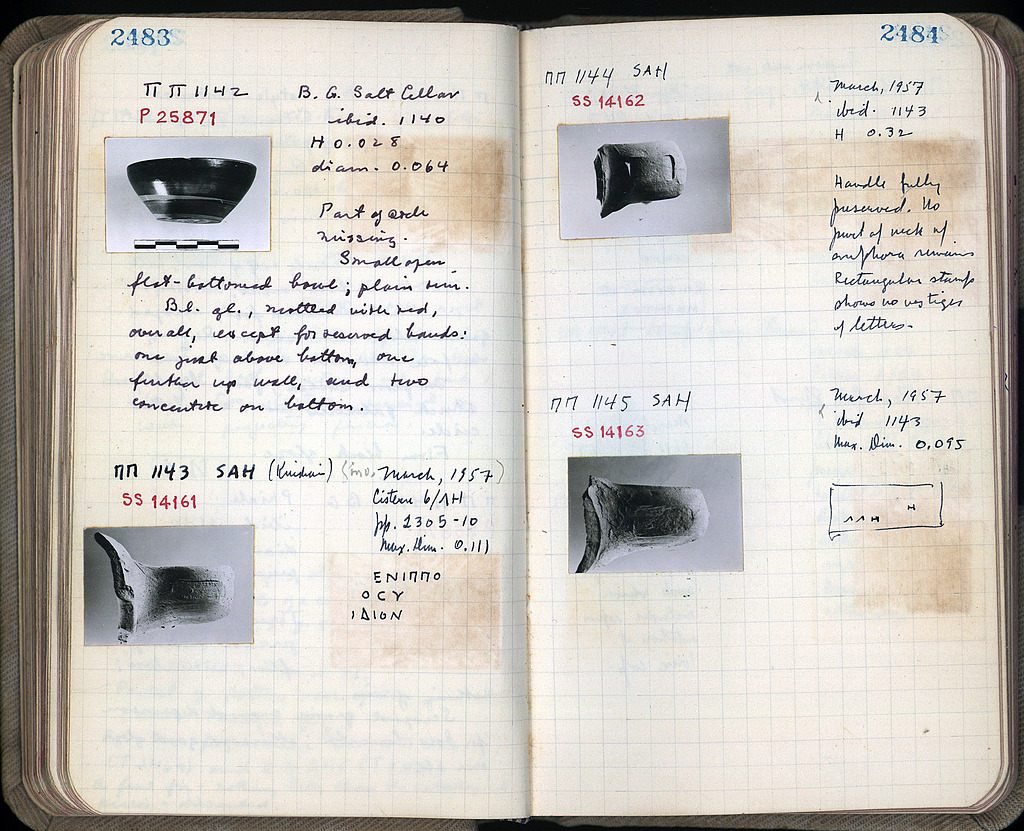 2483
ΠΠ 1142
P 25871
B. G. Salt Cellar
ibid. 1140
H 0.028
diam. 0.064
Part of
missing.
Small open
flat-bottomed bowl; plain rim.
Bl. gl., mottled with red,
overall, except for reserved bands:
one just above bottom, one
further up wall, and two
concentric on bottom.
ΠΠ 1143 SAH (Knidian)
SS 14161
March, 1957
Cistern 6/ΛΗ
pp. 2305-10
Max. Dim. 0.111
ΕΝΙΠΠΟ
ΟCΥ
ΙΔΙΟΝ
2484
ΠΠ 1144 SAH
SS 14162
March, 1957
ibid. 1143
H 0.32
Handle fully
preserved. No
part of neck of
amphora remains
Rectangular stamp
shows no vestiges
of letters.
ΠΠ 1145 SAH
SS 14163
March, 1957
ibid 1143
Max. Dim. 0.095
Η
ΛΛΗ